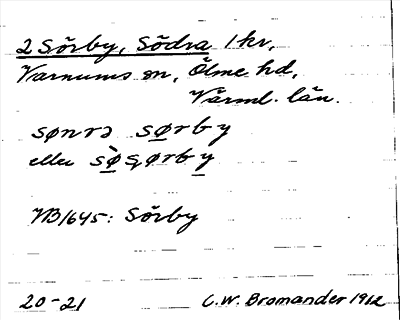 2 Sörby, Södra 1 kr,
Varnums sn, Ölme hd,
Värml. län.
sønrə sørby
eller sø̀ sørby
VB 1645: Sörby
20-21 C.W. Bromander 1912